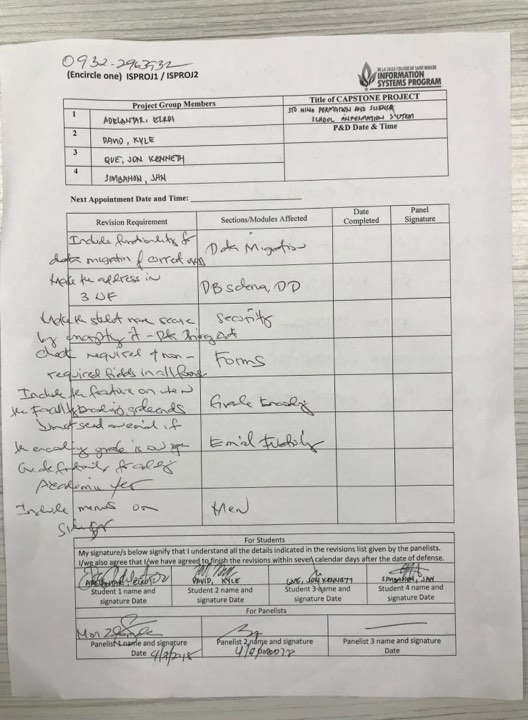 0932-2963532
(Encircle one) ISPROJ1 / ISPROJ2
DE LA SALLE-COLLEGE OF SAINT BENILDE
INFORMATION
SYSTEMS PROGRAM
Project Group Members
Title of CAPSTONE PROJECT
1
STO NINO FORMATION AND SCIENCE
SCHOOL INFORMATION SYSTEM
2 DAVID, KYLE
P&D Date & Time
3 QUE, JON KENNETH
4 SIMBAHON, JAN
Next Appointment Date and Time:
Revision Requirement Sections/Modules Affected Date Completed Panel Signature
Include functionality for
data migration of current app Data Migration
Make the address in
3 NF DB schema, DD
Make the student more secure Security
by encrypting it - Data Privacy Act
check required & non- Forms
required fields in all forms
Include the feature on when
the Faculty encoding grade ends Grade Encoding
Do not send email if
the encoding grade is open
Academic Year
Include menus on Menu
For Students
My signature/s below signify that I understand all the details indicated in the revisions list given by the panelists.
I/we also agree that I/we have agreed to finish the revisions within seven calendar days after the date of defense.
DAVID, KYLE QUE, JON KENNETH SIMBAHON, JAN
Student 1 name and signature Date
Student 2 name and signature Date
Student 3 name and signature Date
Student 4 name and signature Date
For Panelists
Panelist 1 name and signature Date 4/9/2018
Panelist 2 name and signature
Panelist 3 name and signature Date